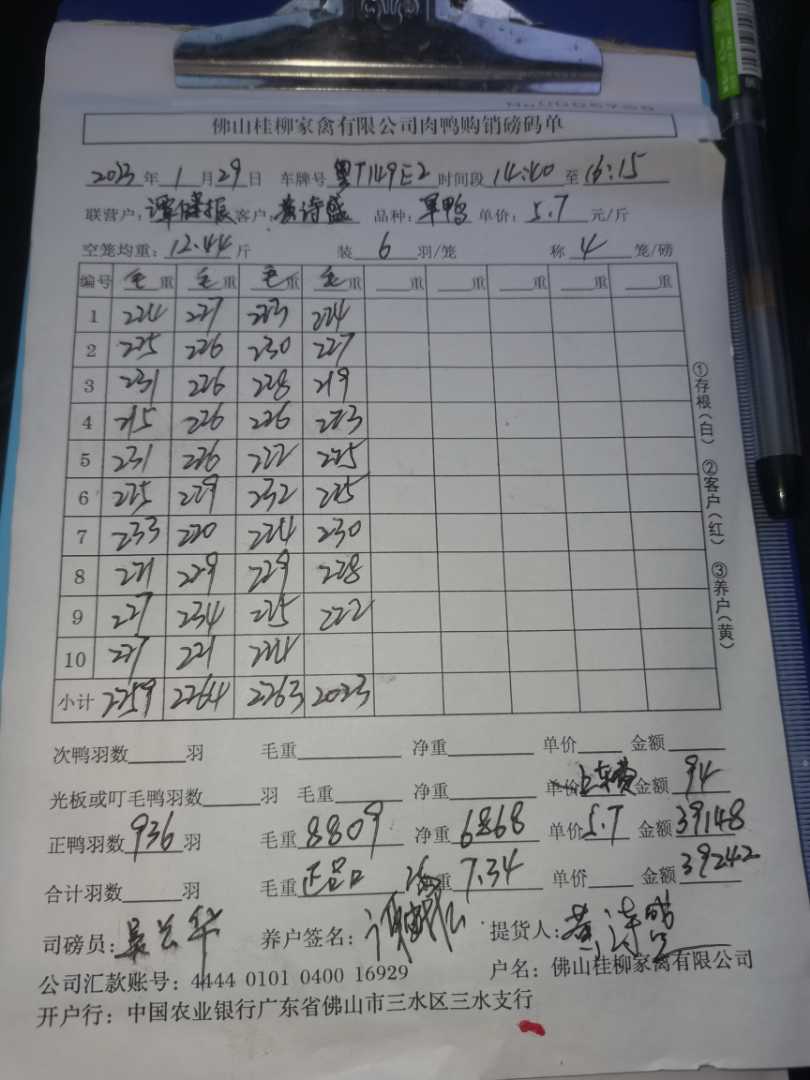 佛山桂柳家禽有限公司肉鸭购销磅码单
2023年1月29日 车牌号 粤T149E2 时间段 14:40 至 16:15
联营户: 谭健振 客户: 黄诗盛 品种: 旱鸭 单价: 5.7 元/斤
空笼均重: 12.44 斤 装 6 羽/笼 称 4 笼/磅
编号 毛重 毛重 毛重 毛重 重 重 重 重 重
1 224 227 223 224
2 225 226 230 227
3 231 226 228 219
4 215 226 226 223
5 231 226 222 225
6 225 229 232 225
7 233 220 224 230
8 221 229 229 228
9 227 234 225 222
10 227 221 224
小计 2259 2264 2263 2023
①存根(白) ②客户(红) ③养户(黄)
次鸭羽数 羽 毛重 净重 单价 金额
光板或叮毛鸭羽数 羽 毛重 净重 单价 上车费 金额 94
正鸭羽数 936 羽 毛重 8809 净重 6868 单价 5.7 金额 39148
合计羽数 羽 毛重 正品 重 7.34 单价 金额 39242
司磅员: 养户签名: 提货人: 黄诗盛
公司汇款账号: 4444 0101 0400 16929 户名: 佛山桂柳家禽有限公司
开户行: 中国农业银行广东省佛山市三水区三水支行